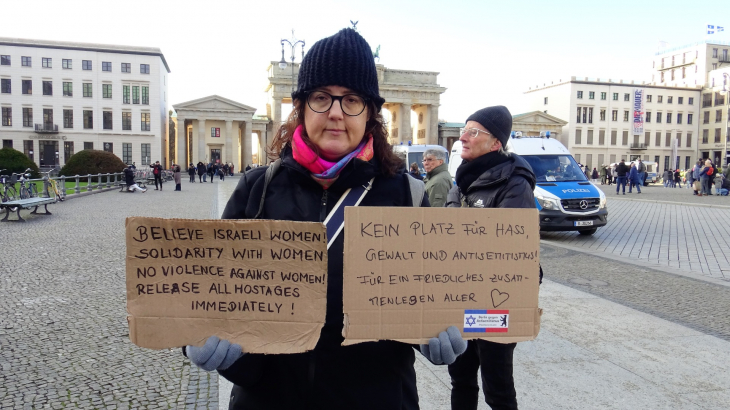 BELIEVE ISRAELI WOMEN!
SOLIDARITY WITH WOMEN
NO VIOLENCE AGAINST WOMEN!
RELEASE ALL HOSTAGES
IMMEDIATELY!
KEIN PLATZ FÜR HASS,
GEWALT UND ANTISEMITISMUS!
FÜR EIN FRIEDLICHES ZUSAM-
MENLEBEN ALLER
POLIZEI